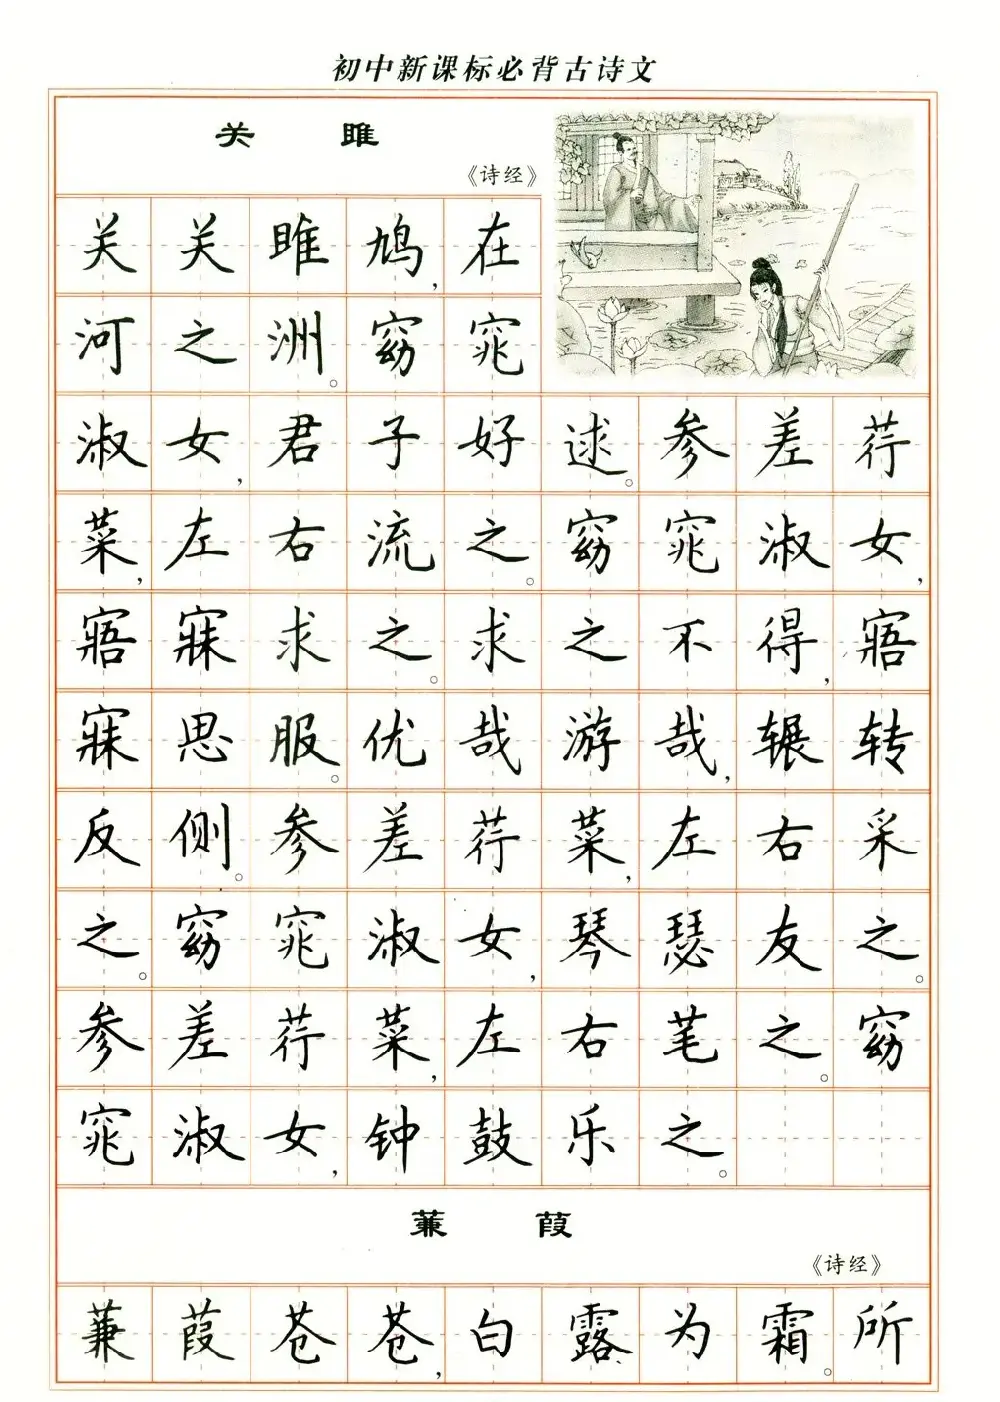 初中新课标必背古诗文
关 雎
《诗经》
关关雎鸠,在
河之洲。窈窕
淑女,君子好逑。参差荇
菜,左右流之。窈窕淑女,
寤寐求之。求之不得,寤
寐思服。优哉游哉,辗转
反侧。参差荇菜,左右采
之。窈窕淑女,琴瑟友之。
参差荇菜,左右芼之。窈
窕淑女,钟鼓乐之。
蒹 葭
《诗经》
蒹葭苍苍,白露为霜。所